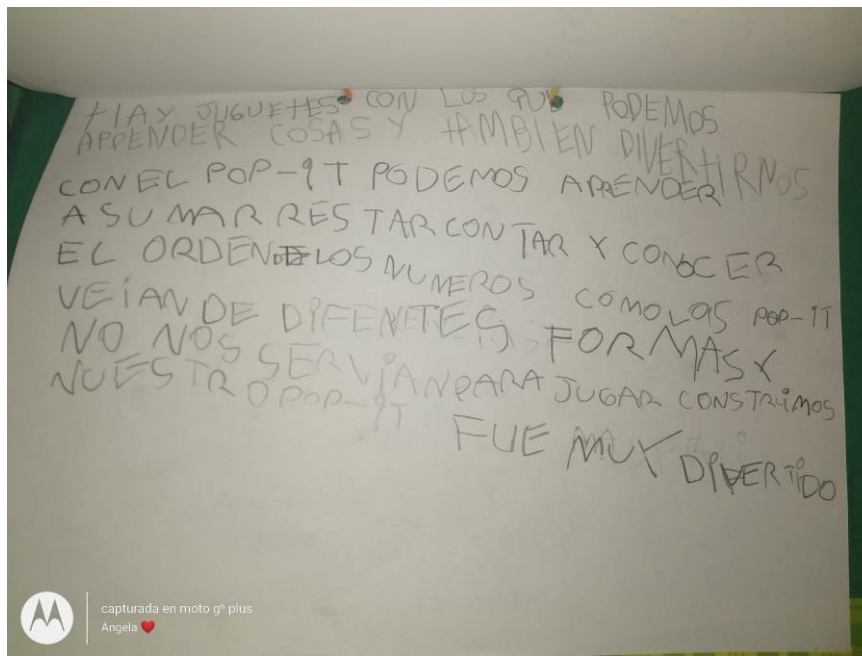 HAY JUGUETES CON LOS QUE PODEMOS
APRENDER COSAS Y TAMBIEN DIVERTIRNOS
CON EL POP-IT PODEMOS APRENDER
A SUMAR RESTAR CONTAR Y CONOCER
EL ORDEN DE LOS NUMEROS COMO LAS POP-IT
VEÍAN DE DIFENTES FORMAS Y
NO NOS SERVÍAN PARA JUGAR CONSTRUIMOS
NUESTRO POP-IT
FUE MUY DIVERTIDO
capturada en moto g⁶ plus
Angela ❤️